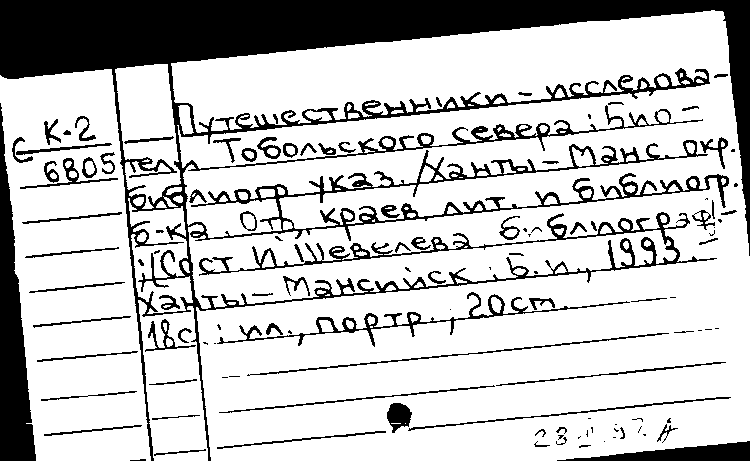 К-2
с 6805
Путешественники - исследова-
тели Тобольского севера : Био-
библиогр указ. / Ханты-Манс. окр.
б-ка. Отд. краев. лит. и библиогр.
; [Сост. И. Шевелева, библиограф]. -
Ханты-Мансийск : Б.и., 1993. -
18с. : ил., портр., 20см.